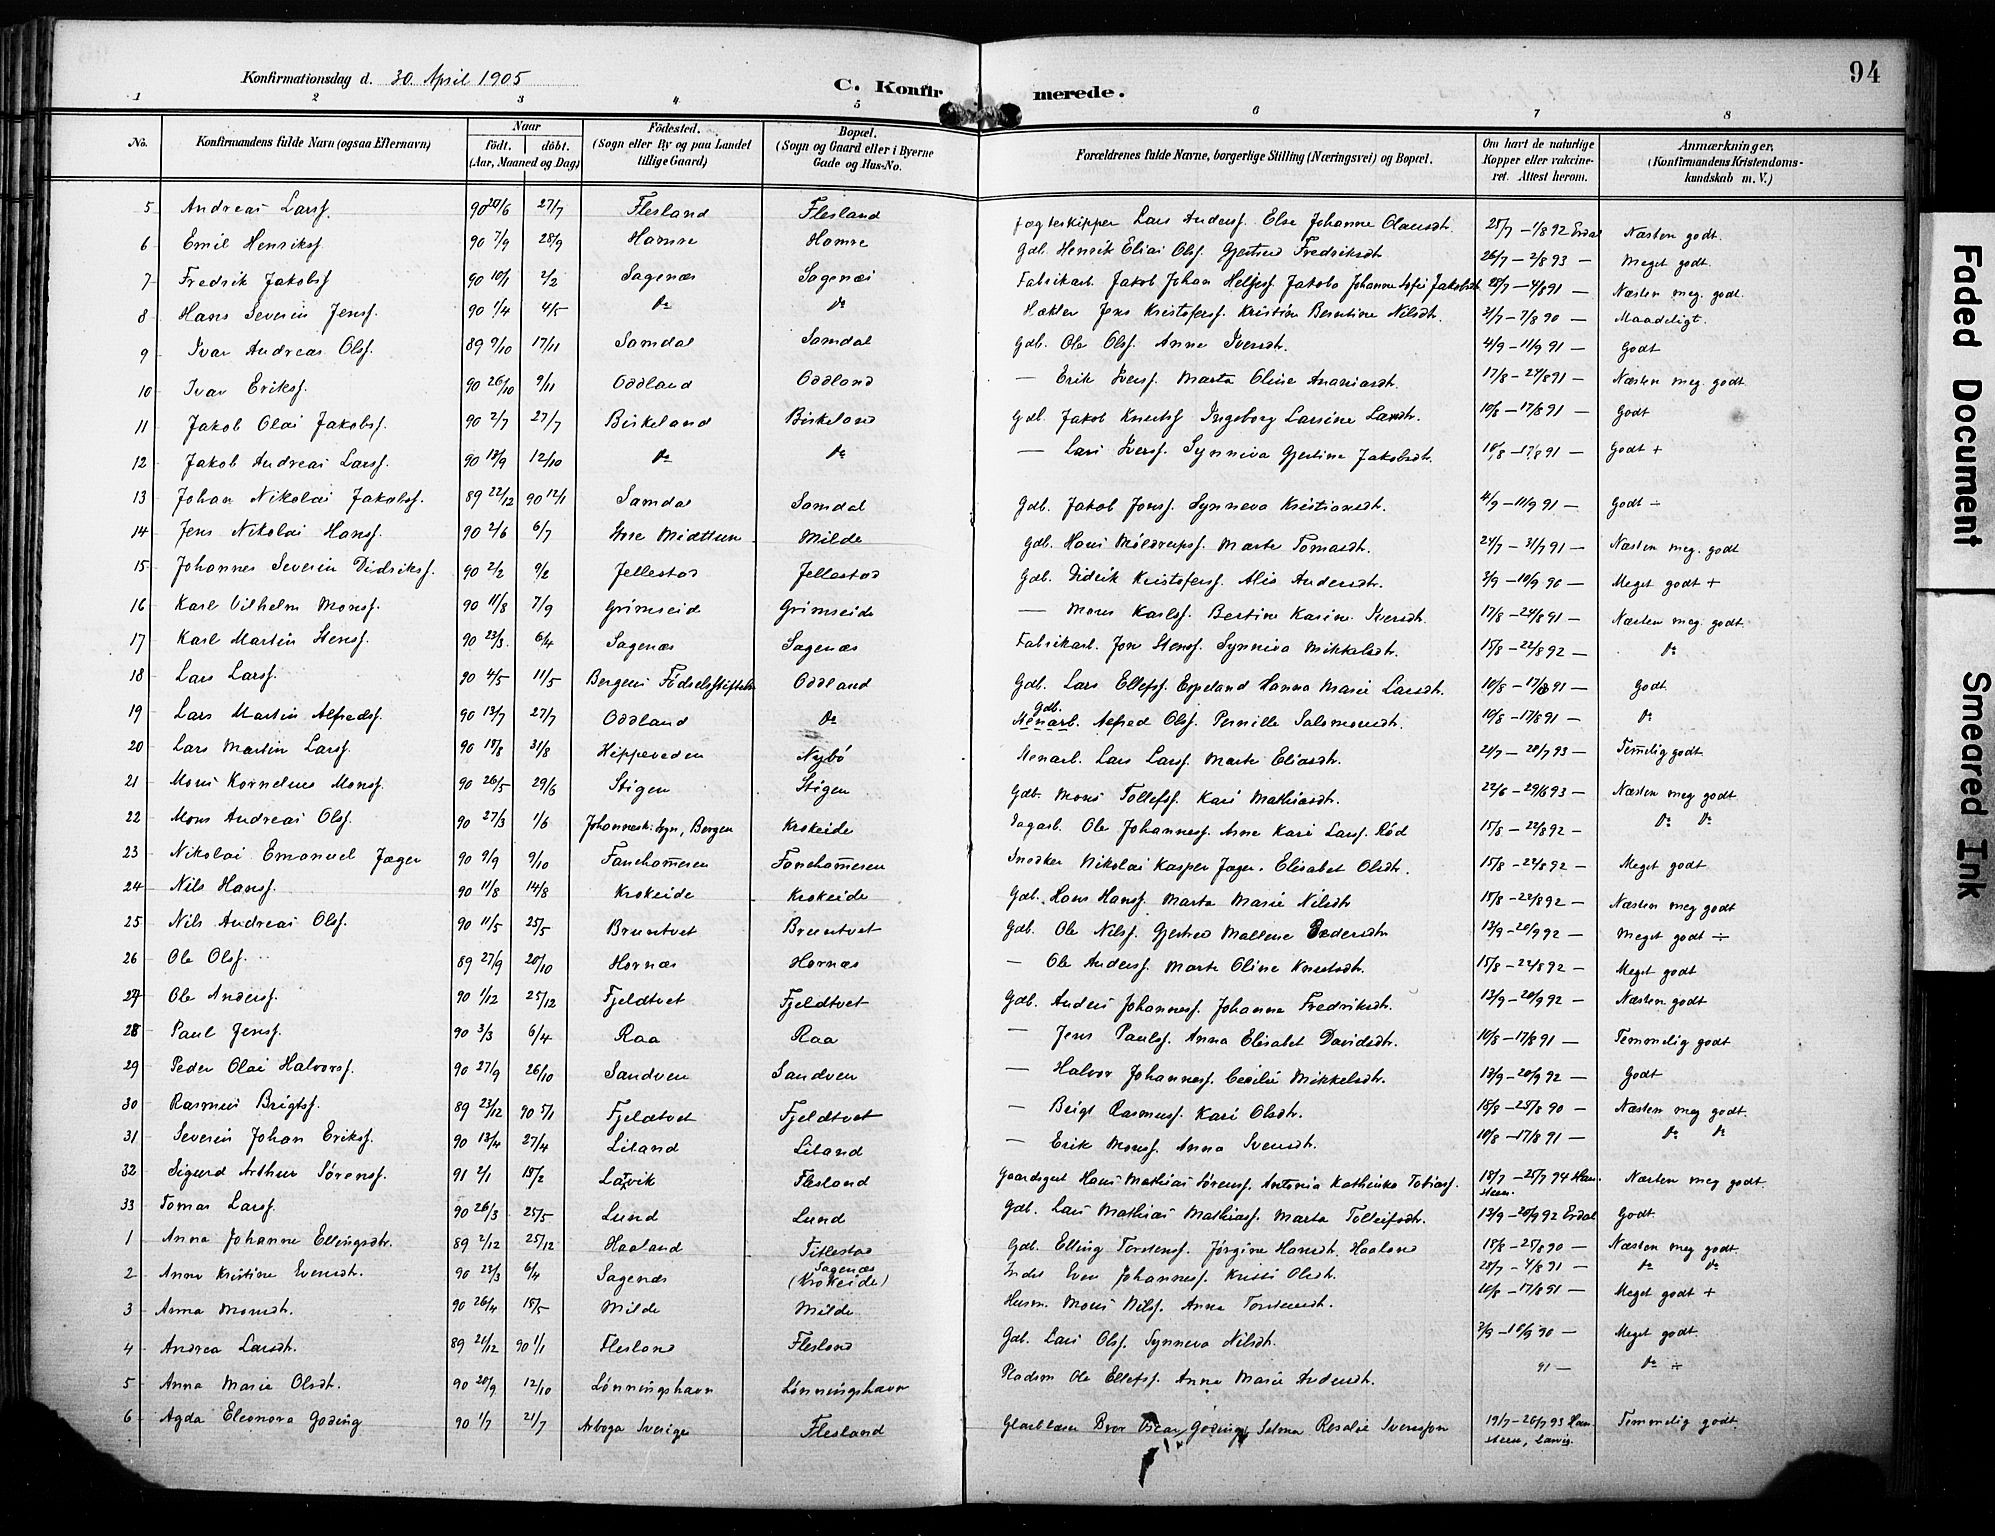 94
Konfirmationsdag d. 30. April 1905
C. Konfirmerede.
1 2 3 4 5 6 7 8
No. Konfirmandens fulde Navn (ogsaa Efternavn) Naar födt. döbt. (Aar, Maaned og Dag) Födested. (Sogn eller By og paa Landet tillige Gaard) Bopæl. (Sogn og Gaard eller i Byerne Gade og Hus-No. Forældrenes fulde Navne, borgerlige Stilling (Næringsvei) og Bopæl. Om havt de naturlige Kopper eller vakcineret. Attest herom. Anmærkninger. (Konfirmandens Kristendomskundskab m. V.)
5 Andreas Larsf. 90 20/6 27/7 Flesland Flesland Jægteskipper Lars Andersf. Else Johanne Olausdt. 25/7 – 1/8 92 Erdal Næsten godt.
6 Emil Henriksf. 90 7/9 28/9 Hamre Hamre Gdb. Henrik Elias Olsf. Gjertrud Fredriksdt. 26/7 – 2/8 93 — Meget godt.
7 Fredrik Jakobsf 90 10/1 2/2 Sagenæs Sagenæs Fabrikarb. Jakob Johan Jakoba Johanne Sofie Jakobsdt. 28/7 – 4/8 91 — Næsten meg. godt.
8 Hans Severin Jensf. 90 1/4 4/5 do do Jens Kristofersf. Kristine Berntine Nilsdt. 31/7 – 7/8 90 — Maadeligt.
9 Ivar Andreas Olsf. 89 9/10 17/11 Samdal Samdal Gdb. Ole Olsf. Anna Iversdt. 4/9 – 11/9 91 — Godt
10 Ivar Eriksf. 90 26/10 9/11 Oddland Oddland — Erik Iversf. Marta Oline Ananiasdt. 17/8 – 24/8 91 — Næsten meg. godt
11 Jakob Olai Jakobsf. 90 2/7 27/7 Birkeland Birkeland Gdb. Jakob Knutsf Ingeborg Larsine Larsdt. 10/8 – 17/8 91 — Godt
12 Jakob Andreas Larsf. 90 18/9 12/10 do do — Lars Iversf. Synneva Gjertine Jakobsdt. 10/8 – 17/8 91 — Godt +
13 Johan Nikolai Jakobsf. 89 22/12 90 12/1 Samdal Samdal Gdb. Jakob Jonsf. Synneva Kristiansdt. 4/9 – 11/9 91 — Godt ÷
14 Jens Nikolai Hansf. 90 2/6 6/7 Store Midttun Milde Gdb. Hans Marta Tomasdt. 24/7 – 31/7 91 — Næsten meg. godt
15 Johannes Severin Didriksf. 90 2/2 9/2 Jellestad Jellestad Gdb. Didrik Kristofersf. Alis Andersdt. 3/9 – 10/9 90 — Meget godt +
16 Karl Vilhelm Monsf. 90 11/8 7/9 Grimseid Grimseide — Mons Karlsf. Bertine Karine Iversdt. 17/8 – 24/8 91 — Næsten meg. godt.
17 Karl Martin Stensf. 90 23/3 6/4 Sagenæs Sagenæs Fabrikarb. Jon Stensf. Synneva Mikkelsdt. 15/8 – 22/8 92 — do
18 Lars Larsf. 90 4/5 11/5 Bergens Fødselsstiftelse Oddland Gdb. Lars Ellefsf. Espeland Hanna Marie Larsdt. 10/8 – 17/8 91 — Godt
19 Lars Martin Alfredsf. 90 13/7 27/7 Oddland do Gdb. Menarb. Alfred Olsf. Pernille Salomonsdt. 10/8 – 17/8 91 — do
20 Lars Martin Larsf. 90 18/8 31/8 Hippeveden Nybø Menarb. Lars Larsf. Marta Eliasdt. 21/7 – 28/7 93 — Temelig godt
21 Mons Kornelius Monsf. 90 26/5 29/6 Stigen Stigen Gdb. Mons Tollefsf. Kari Mathiasdt. 22/6 – 29/6 93 — Næsten meg godt
22 Mons Andreas Olsf. 90 27/3 1/6 Johannesk. Sogn, Bergen Krokeide Dagarb. Ole Johannesf. Ane Kari Larsf. Rød 15/8 – 22/8 92 — do do
23 Nikolai Emanuel Jæger 90 9/9 9/10 Fanehameren Fanehameren Snedker Nikolai Kasper Jæger. Elisabet Olsdt. 15/8 – 22/8 92 — Meget godt
24 Nils Hansf. 90 11/8 14/8 Krokeide Krokeide Gdb. Hans Hansf. Marta Marie Nilsdt 15/8 – 22/8 92 — Næsten meg godt
25 Nils Andreas Olsf. 90 11/5 25/5 Bruntvet Bruntvet Gdb. Ole Nilsf. Gjertrud Mallene Pedersdtr 13/9 – 20/9 92 — Meget godt ÷
26 Ole Olsf. 89 27/9 20/10 Hornæs Hornæs — Ole Andersf. Marta Oline Knutsdt. 15/8 – 22/8 92 — Meget godt
27 Ole Andersf. 90 1/12 25/12 Fjeldtvet Fjeldtvet Gdb. Anders Johannesf. Johanna Fredriksdt. 13/9 – 20/9 92 — Næsten godt
28 Paul Jensf. 90 3/3 6/4 Raa Raa — Jens Paulsf. Anna Elisabet Davidsdt. 10/8 – 17/8 91 — Temmelig godt
29 Peder Olai Halvorsf. 90 27/9 26/10 Sandven Sandven — Halvor Johannesf. Cecilie Mikkelsdt. 13/9 – 20/9 92 — Godt
30 Rasmus Brigtsf. 89 23/12 90 5/1 Fjeldtvet Fjeldtvet — Brigt Rasmusf. Kari Olsdt. 18/8 – 25/8 90 — Næsten meg godt.
31 Severin Johan Eriksf. 90 13/4 27/4 Liland Liland — Erik Monsf. Anna Svensdt. 10/8 – 17/8 91 — do do
32 Sigurd Arthur Sørensf. 91 2/1 15/2 Larvik Flesland Gaardsgut Hans Mathias Sørensf. Antonia Kathinka Tobiasf. 18/7 – 25/7 94 Hansteen. Næsten meg godt.
33 Tomas Larsf. 90 26/3 25/5 Lund Lund Gdb. Lars Mathias Mathiasf. Marta Tolleifsdt. 13/9 – 20/9 92 Erdal Godt.
1 Anna Johanne Ellingsdt. 89 2/12 25/12 Haaland Titlestad Gdb. Elling Torstensf. Jørgine Hansdt. Haaland 18/8 – 25/8 90 — Næsten meg godt.
2 Anna Kristine Evensdt. 90 23/3 6/4 Sagenæs Sagenæs (Krokeide) Inds Even Johannesf. Kristi Olsdt. 28/7 – 4/8 91 — do do
3 Anna Monsdt. 90 26/4 15/5 Milde Milde Husm. Mons Nilsf. Anna Torstensdt. 10/8 – 17/8 91 — Meget godt +
4 Andrea Larsdt. 89 21/12 90 1/1 Flesland Flesland Gdb. Lars Olsf. Synneva Nilsdt. 3/9 – 10/9 90 — Meget godt.
5 Anna Marie Olsdt. 90 20/9 12/10 Lønningshavn Lønningshavn Pladsm Ole Ellefsf. Anna Marie Andersdt. 91 — do ÷
6 Agda Eleonora Goding 90 1/7 21/7 Arboga Sverige Flesland Glasblæser Bror Oscar Goding, Selma Rosalie Svensson 19/7 – 26/7 93 Hansteen, Larvig. Temmelig godt.
Faded Document
Smeared Ink